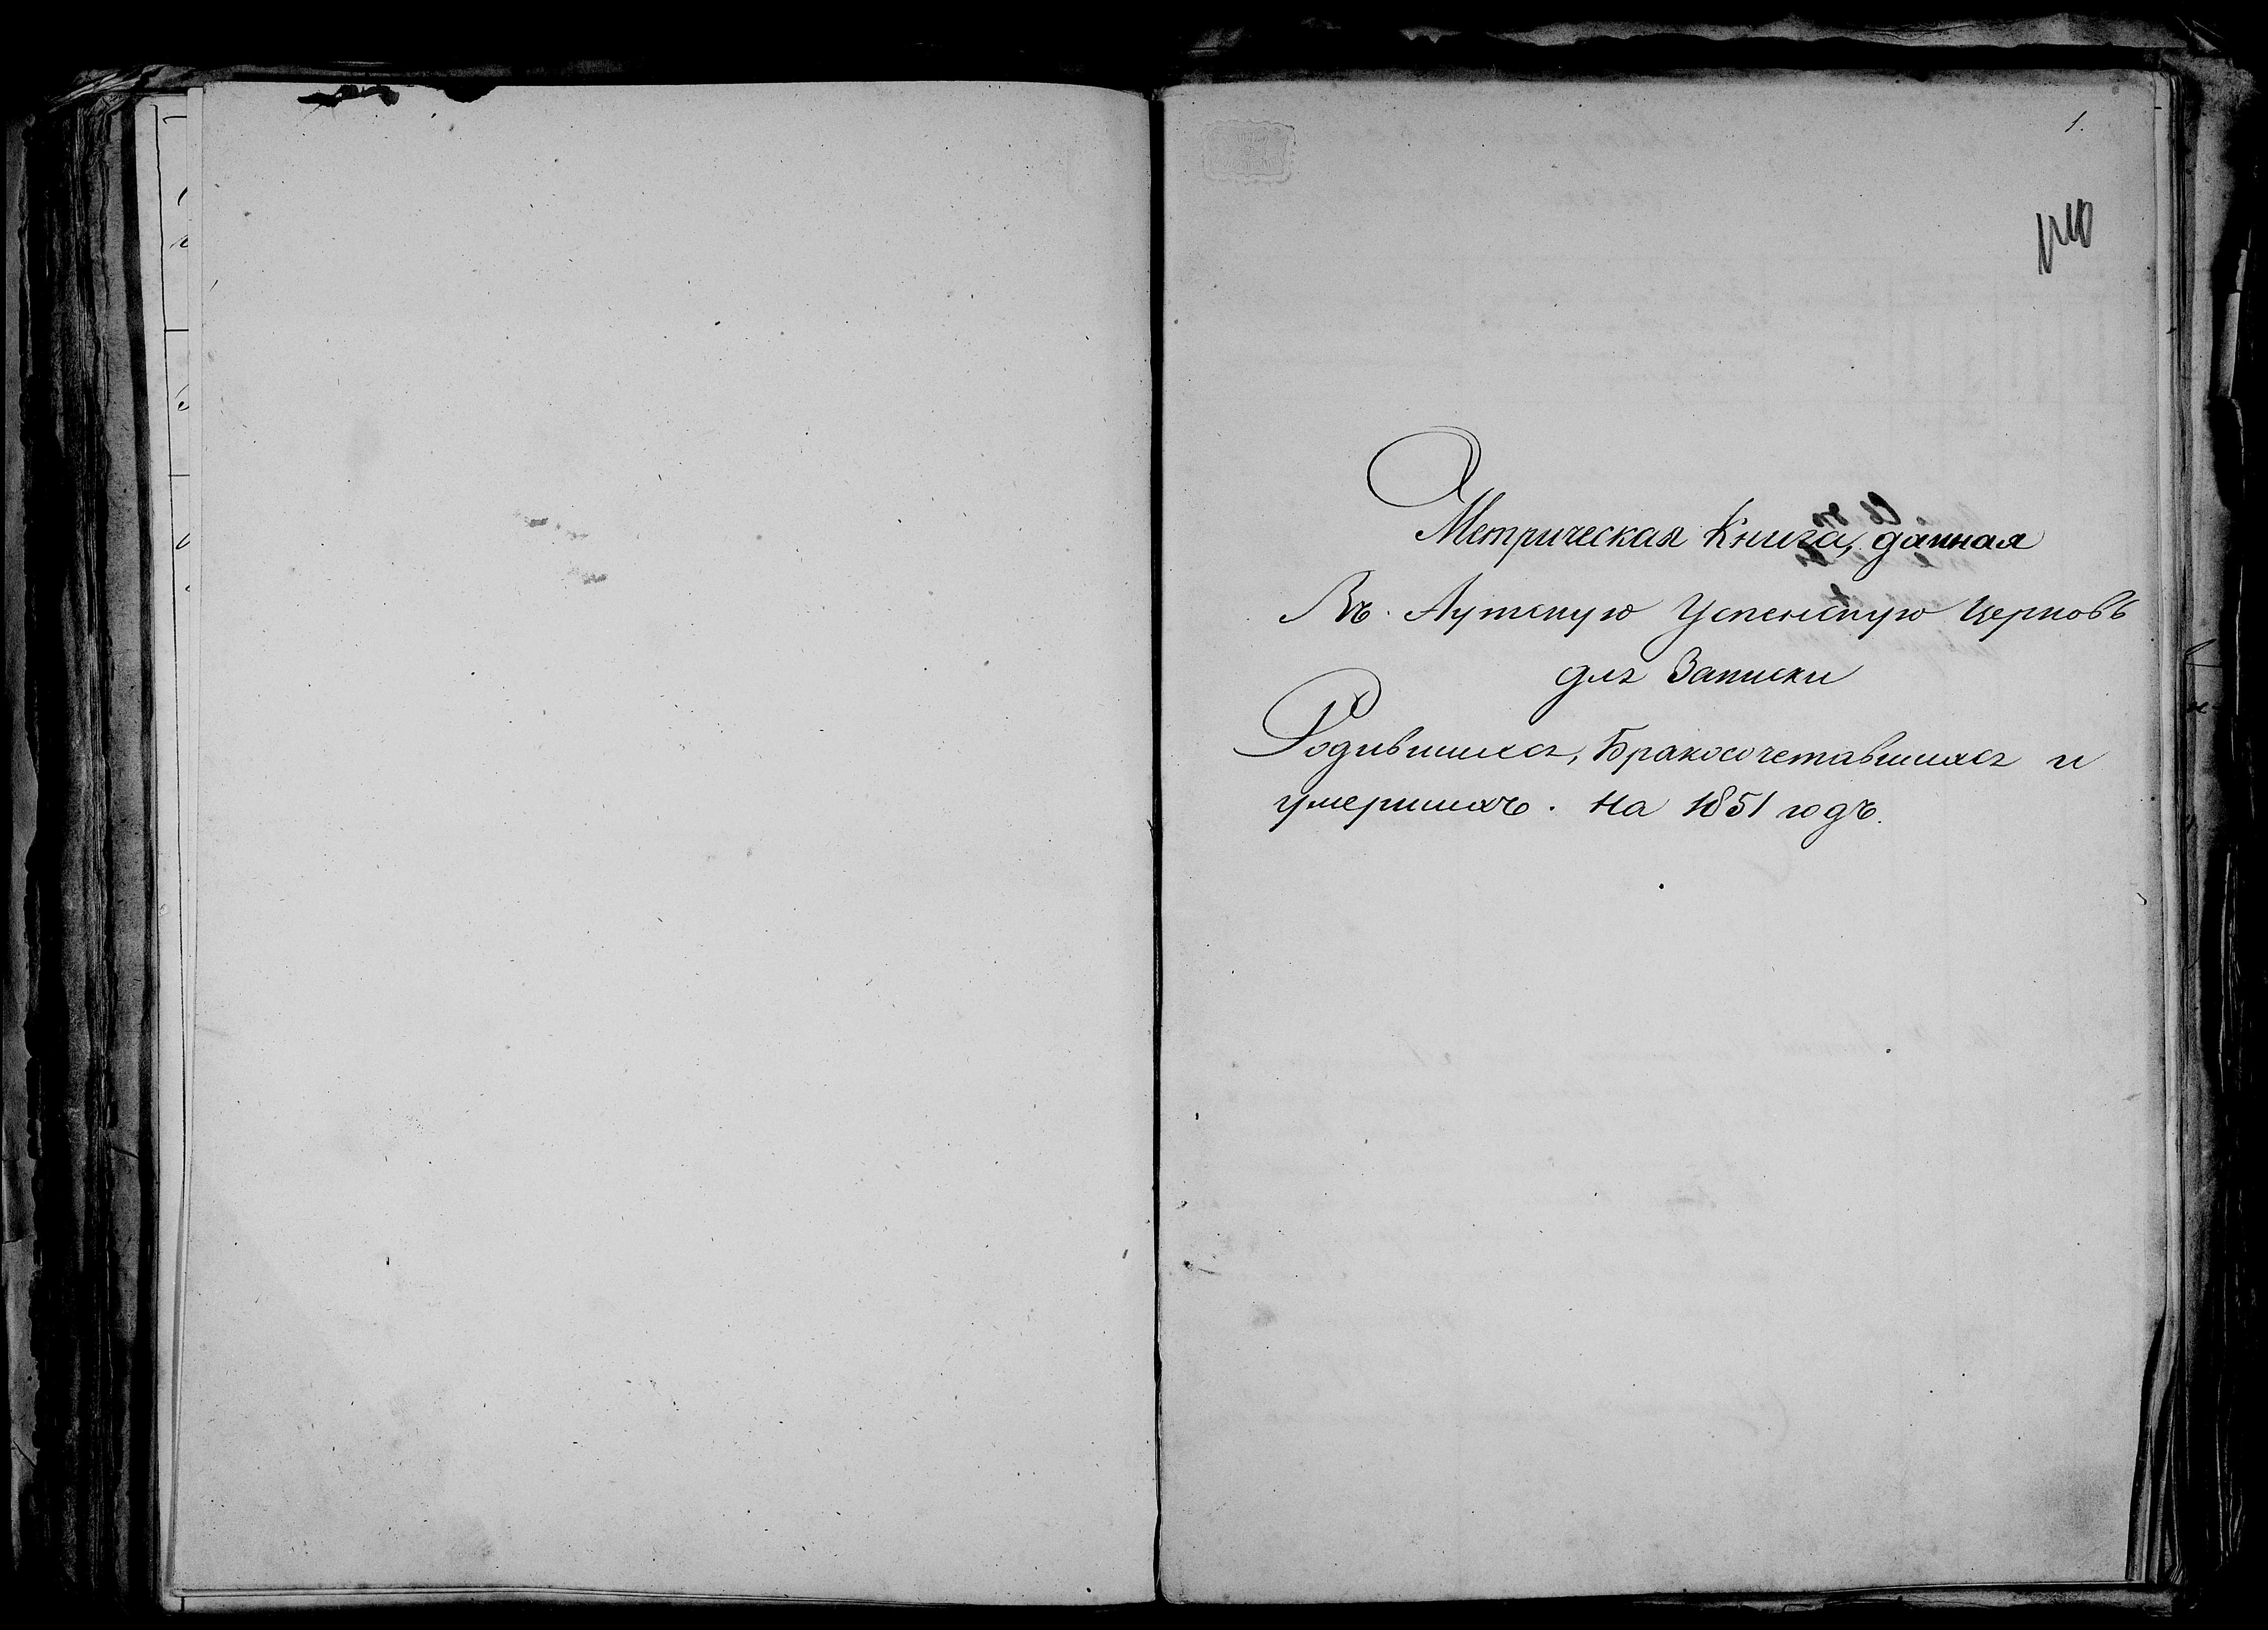 1.
Метрическая Книга, данная
Въ Аутскую Успенскую Церковь
для Записки
Родившихся, Бракосочетавшихся и
умершихъ. На 1851 годъ.